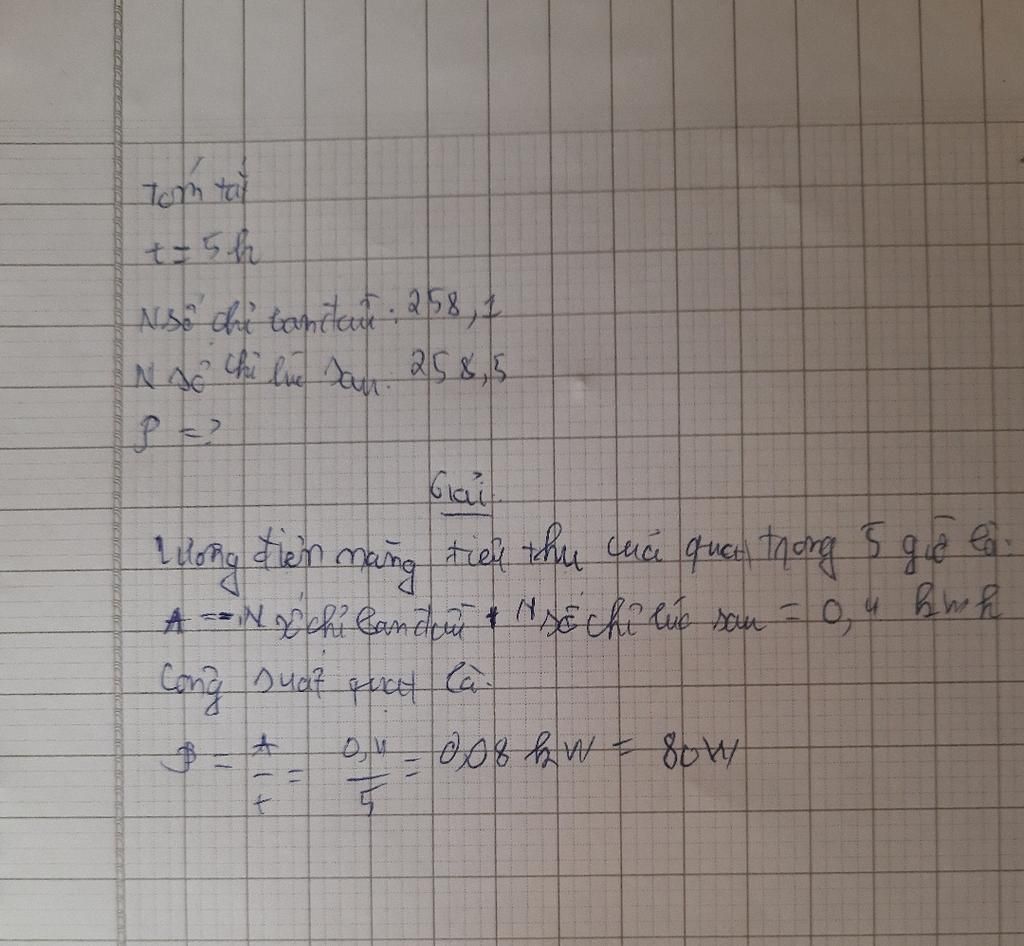 Tóm tắt
t = 5h
N số chỉ ban đầu : 258,1
N số chỉ lúc sau : 258,5
P = ?
Giải
Lượng điện năng tiêu thụ của quạt trong 5 giờ là:
A = N số chỉ ban đầu N số chỉ lúc sau = 0,4 kwh
Công suất quạt là:
P = A/t = 0,4/5 = 0,08 kW = 80W